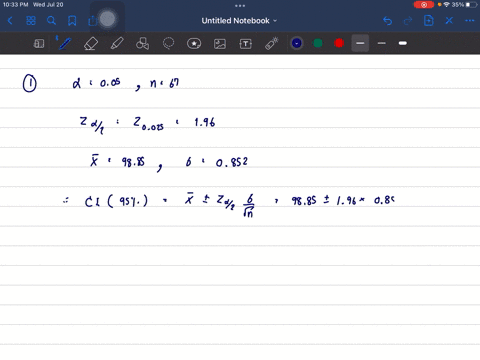 10:33 PM Wed Jul 20
35%
Untitled Notebook
① α = 0.05 , n = 67
Z α/2 = Z 0.025 = 1.96
x̄ = 98.85 , σ = 0.852
∴ CI ( 95%. ) = x̄ ± Z α/2 σ/√n = 98.85 ± 1.96 × 0.85